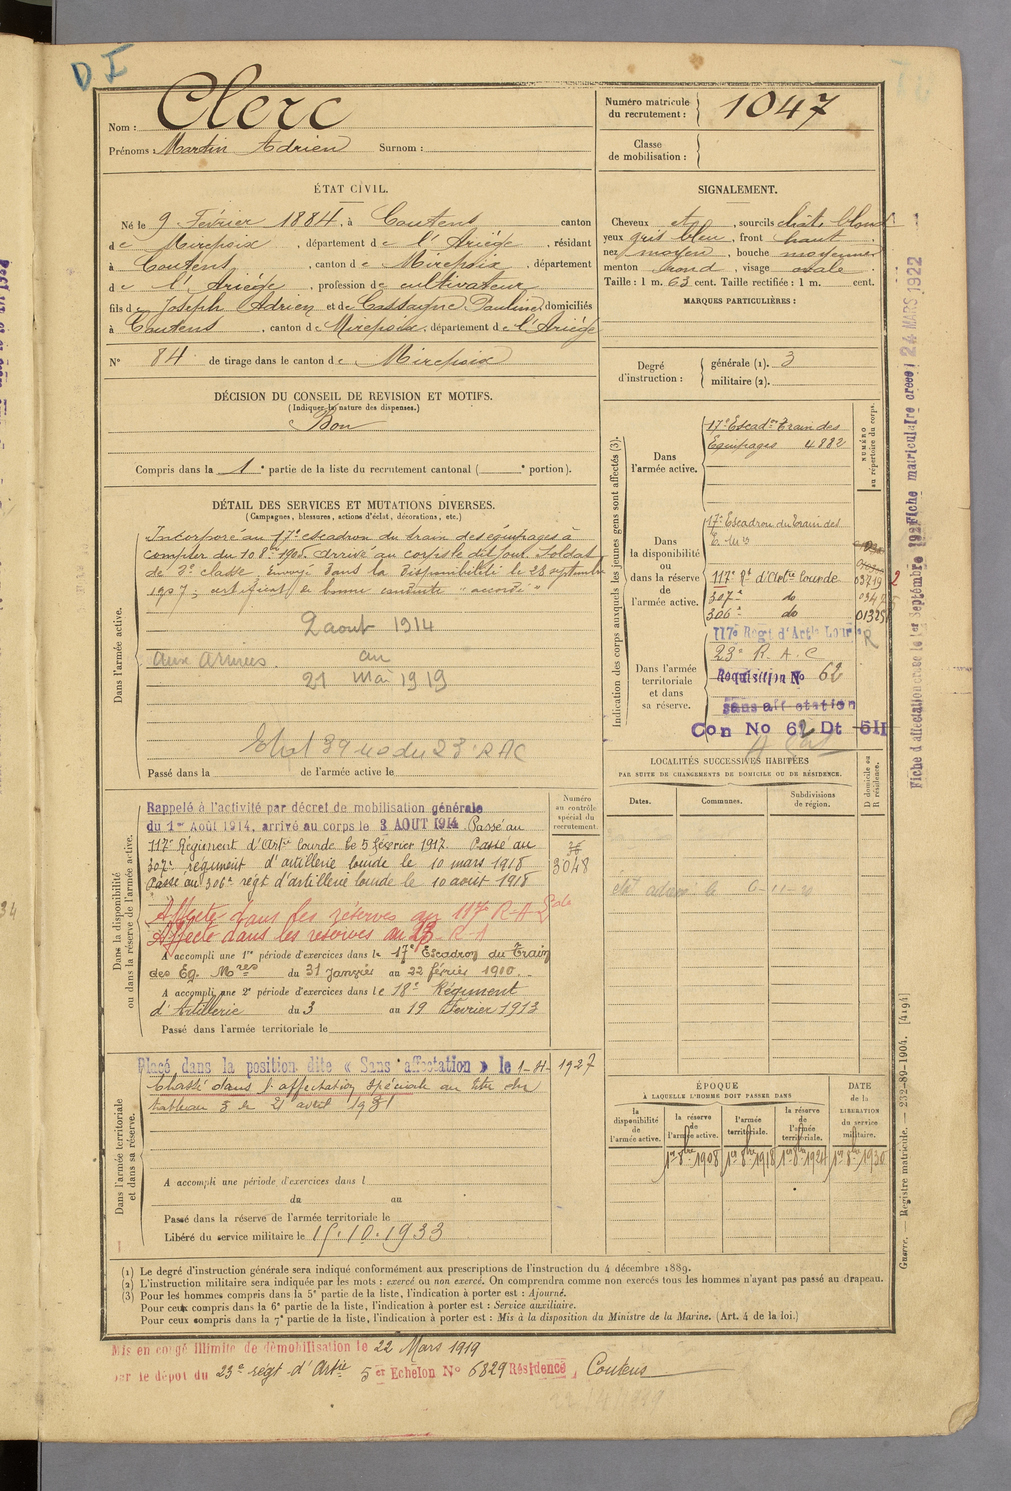 D I
Nom : Clerc
Prénoms : Martin Adrien Surnom :
Numéro matricule
du recrutement : 1047
Classe
de mobilisation :
ÉTAT CIVIL.
Né le 9 Février 1884, à Coutens canton
de Mirepoix, département de l'Ariège, résidant
à Coutens, canton de Mirepoix, département
de l'Ariège, profession de cultivateur
fils de Joseph Adrien et de Cassaigne Pauline, domiciliés
à Coutens, canton de Mirepoix, département de l'Ariège
N° 84 de tirage dans le canton de Mirepoix
SIGNALEMENT.
Cheveux et, sourcils chât. blond
yeux gris bleu, front haut,
nez moyen, bouche moyenne
menton rond, visage ovale.
Taille : 1 m. 63 cent. Taille rectifiée : 1 m. cent.
MARQUES PARTICULIÈRES :
Degré
d'instruction :
générale (1). 3
militaire (2).
DÉCISION DU CONSEIL DE REVISION ET MOTIFS.
(Indiquer la nature des dispenses.)
Bon
Compris dans la 1e partie de la liste du recrutement cantonal ( e portion).
DÉTAIL DES SERVICES ET MUTATIONS DIVERSES.
(Campagnes, blessures, actions d'éclat, décorations, etc.)
Dans l'armée active.
Incorporé au 17e escadron du train des équipages à
compter du 10 8bre 1905. Arrivé au corps le dit jour. Soldat
de 2e classe. Envoyé dans la disponibilité le 28 septembre
1907; certificat de bonne conduite "accordé"
2 aout 1914
Aux Armées. au
21 Mai 1919
Etat 39 du 23e RAC
Passé dans la de l'armée active le
Indication des corps auxquels les jeunes gens sont affectés (3).
NUMÉRO
au répertoire du corps.
Dans
l'armée active.
17e Escadon Train des
Equipages 4882
Dans
la disponibilité
ou
dans la réserve
de
l'armée active.
17e Escadron du Train des
E. Mres
117e Rt d'Artie Lourde 03719
307e do
306e do 01325
Dans l'armée
territoriale
et dans
sa réserve.
117e Régt d'Artie Lour R
23e R.A.C
Réquisition No 62
sans affectation
Con No 62 Dt 5II
Fiche d'affectation créée le 1er Septembre 192 Fiche matriculaire créée 24 MARS 1922
Dans la disponibilité
ou dans la réserve de l'armée active.
Rappelé à l'activité par décret de mobilisation générale
du 1er Août 1914, arrivé au corps le 3 AOUT 1914 Passé au
117e Régiment d'Artie lourde le 5 février 1917. Passé au
307e régiment d'artillerie lourde le 10 mars 1918
Passé au 306e régt d'artillerie lourde le 10 aout 1918
Affecté dans les réserves au 117e R.A.L
Affecté dans les réserves au 23 R A
A accompli une 1re période d'exercices dans le 17e Escadron du Train
des Eq. Mres du 31 janvier au 22 février 1910.
A accompli une 2e période d'exercices dans le 18e Régiment
d'Artillerie du 3 au 19 Février 1913
Passé dans l'armée territoriale le
Numéro
au contrôle
spécial du
recrutement.
3048
LOCALITÉS SUCCESSIVES HABITÉES
PAR SUITE DE CHANGEMENTS DE DOMICILE OU DE RÉSIDENCE.
Dates. Communes. Subdivisions
de région.
D domicile ou
R résidence.
Dans l'armée territoriale
et dans sa réserve.
Placé dans la position dite « Sans affectation » le 1-4-1927
Classé dans l'affectation spéciale au titre du
tableau 3 le 21 avril 1931
A accompli une période d'exercices dans l
du au
Passé dans la réserve de l'armée territoriale le
Libéré du service militaire le 15.10.1933
ÉPOQUE
À LAQUELLE L'HOMME DOIT PASSER DANS
la
disponibilité
de
l'armée active.
la réserve
de
l'armée active.
l'armée
territoriale.
la réserve
de
l'armée
territoriale.
DATE
de la
LIBÉRATION
du service
militaire.
1er 8bre 1908 1er 8bre 1918 1er 8bre 1924 1er 8bre 1930
Guerre. — Registre matricule. — 232-89-1904. [4194]
(1) Le degré d'instruction générale sera indiqué conformément aux prescriptions de l'instruction du 4 décembre 1889.
(2) L'instruction militaire sera indiquée par les mots : exercé ou non exercé. On comprendra comme non exercés tous les hommes n'ayant pas passé au drapeau.
(3) Pour les hommes compris dans la 5e partie de la liste, l'indication à porter est : Ajourné.
Pour ceux compris dans la 6e partie de la liste, l'indication à porter est : Service auxiliaire.
Pour ceux compris dans la 7e partie de la liste, l'indication à porter est : Mis à la disposition du Ministre de la Marine. (Art. 4 de la loi.)
Mis en congé illimité de démobilisation le 22 Mars 1919
par le dépôt du 23e régt d'Artie 5er Echelon No 6829 Résidence, Coutens